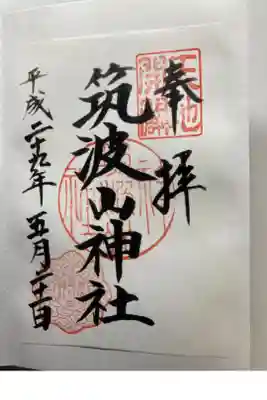 奉拝
筑波山神社
平成二十九年五月二十一日